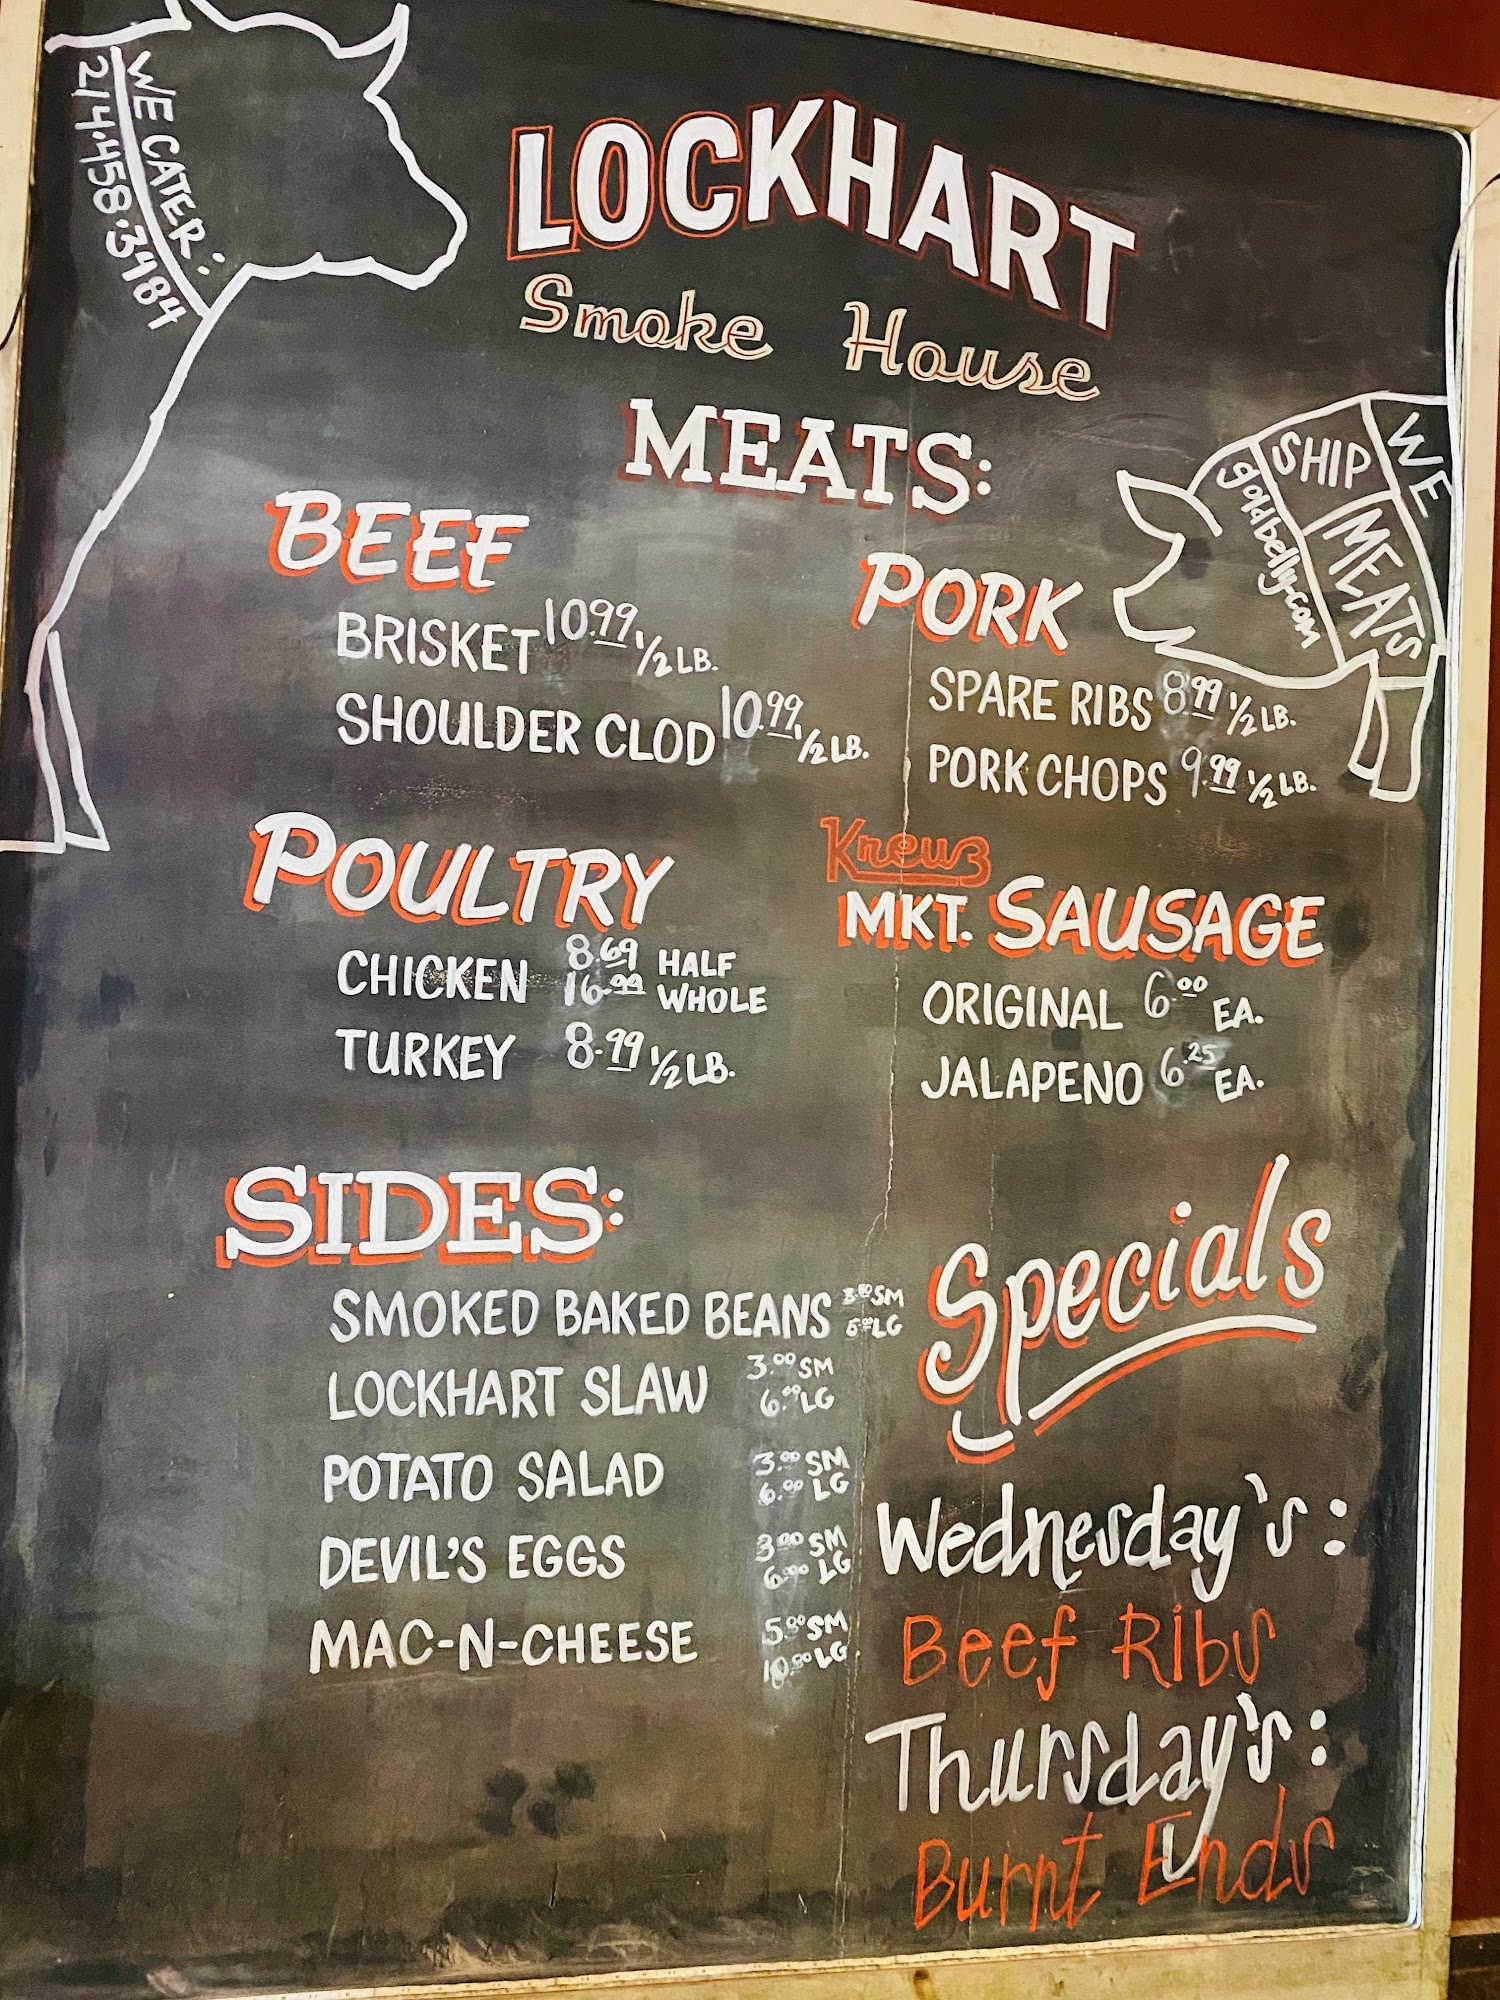 WE CATER:
214.458.3484
LOCKHART
Smoke House
MEATS:
WE
SHIP
MEATS
goldbelly.com
BEEF
BRISKET 10.99 1/2 LB.
SHOULDER CLOD 10.99 1/2 LB.
PORK
SPARE RIBS 8.99 1/2 LB.
PORK CHOPS 9.99 1/2 LB.
POULTRY
CHICKEN 8.69 HALF
16.99 WHOLE
TURKEY 8.99 1/2 LB.
Kreuz
MKT. SAUSAGE
ORIGINAL 6.00 EA.
JALAPENO 6.25 EA.
SIDES:
SMOKED BAKED BEANS SM
LG
LOCKHART SLAW 3.00 SM
6.00 LG
POTATO SALAD 3.00 SM
6.00 LG
DEVIL'S EGGS 3.00 SM
6.00 LG
MAC-N-CHEESE 5.00 SM
10.00 LG
Specials
Wednesday's:
Beef Ribs
Thursday's:
Burnt Ends